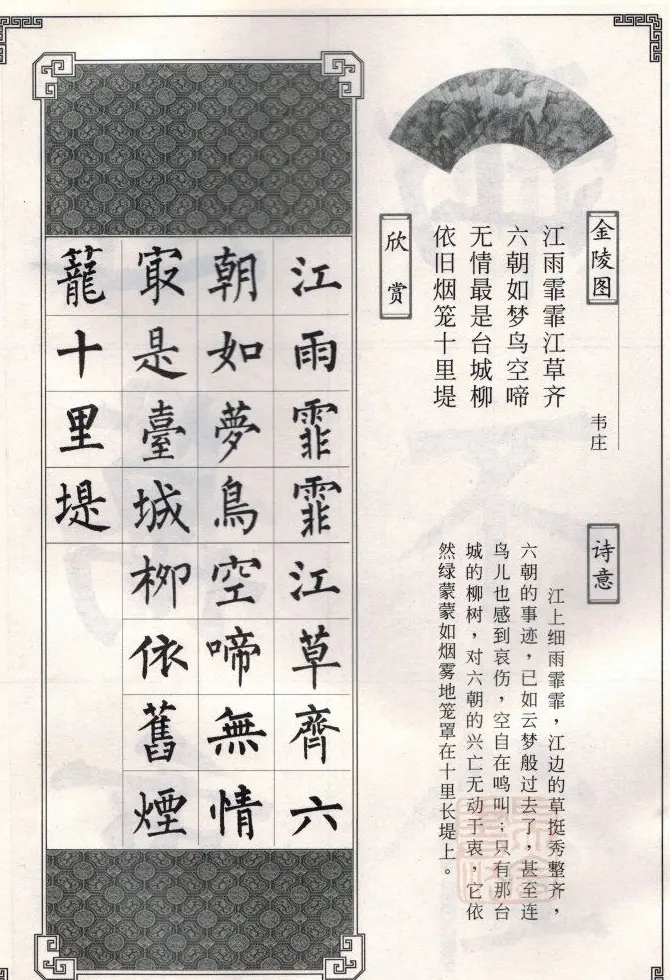 金陵图
韦庄
江雨霏霏江草齐
六朝如梦鸟空啼
无情最是台城柳
依旧烟笼十里堤
欣赏
诗意
江上细雨霏霏，江边的草挺秀整齐，
六朝的事迹，已如云梦般过去了，甚至连
鸟儿也感到哀伤，空自在鸣叫；只有那台
城的柳树，对六朝的兴亡无动于衷，它依
然绿蒙蒙如烟雾地笼罩在十里长堤上。
江雨霏霏江草齊六
朝如夢鳥空啼無情
㝡是臺城柳依舊煙
籠十里堤